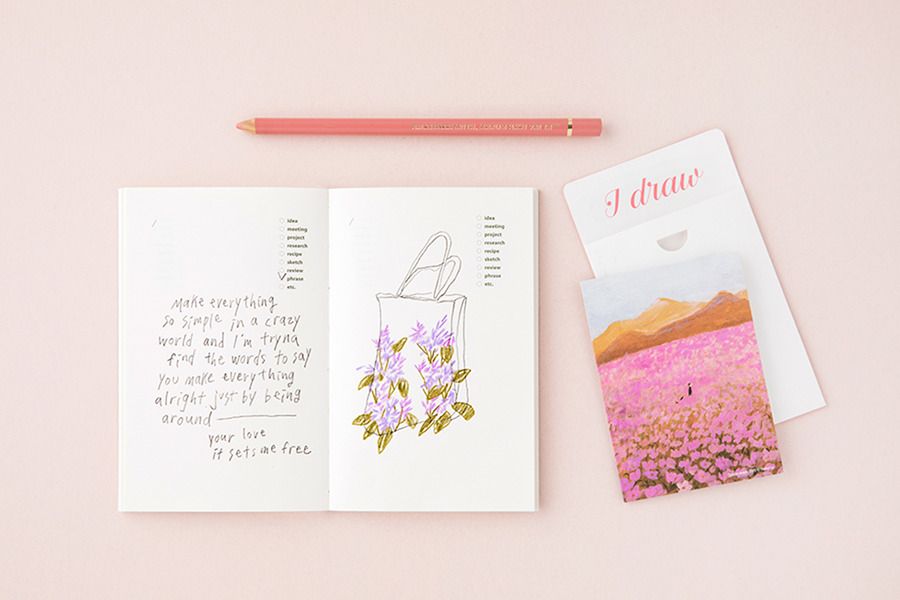 I draw
idea
meeting
project
research
recipe
sketch
review
phrase
etc.
Make everything
so simple in a crazy
world and I'm tryna
find the words to say
you make everything
alright just by being
around
your love
it sets me free
idea
meeting
project
research
recipe
sketch
review
phrase
etc.